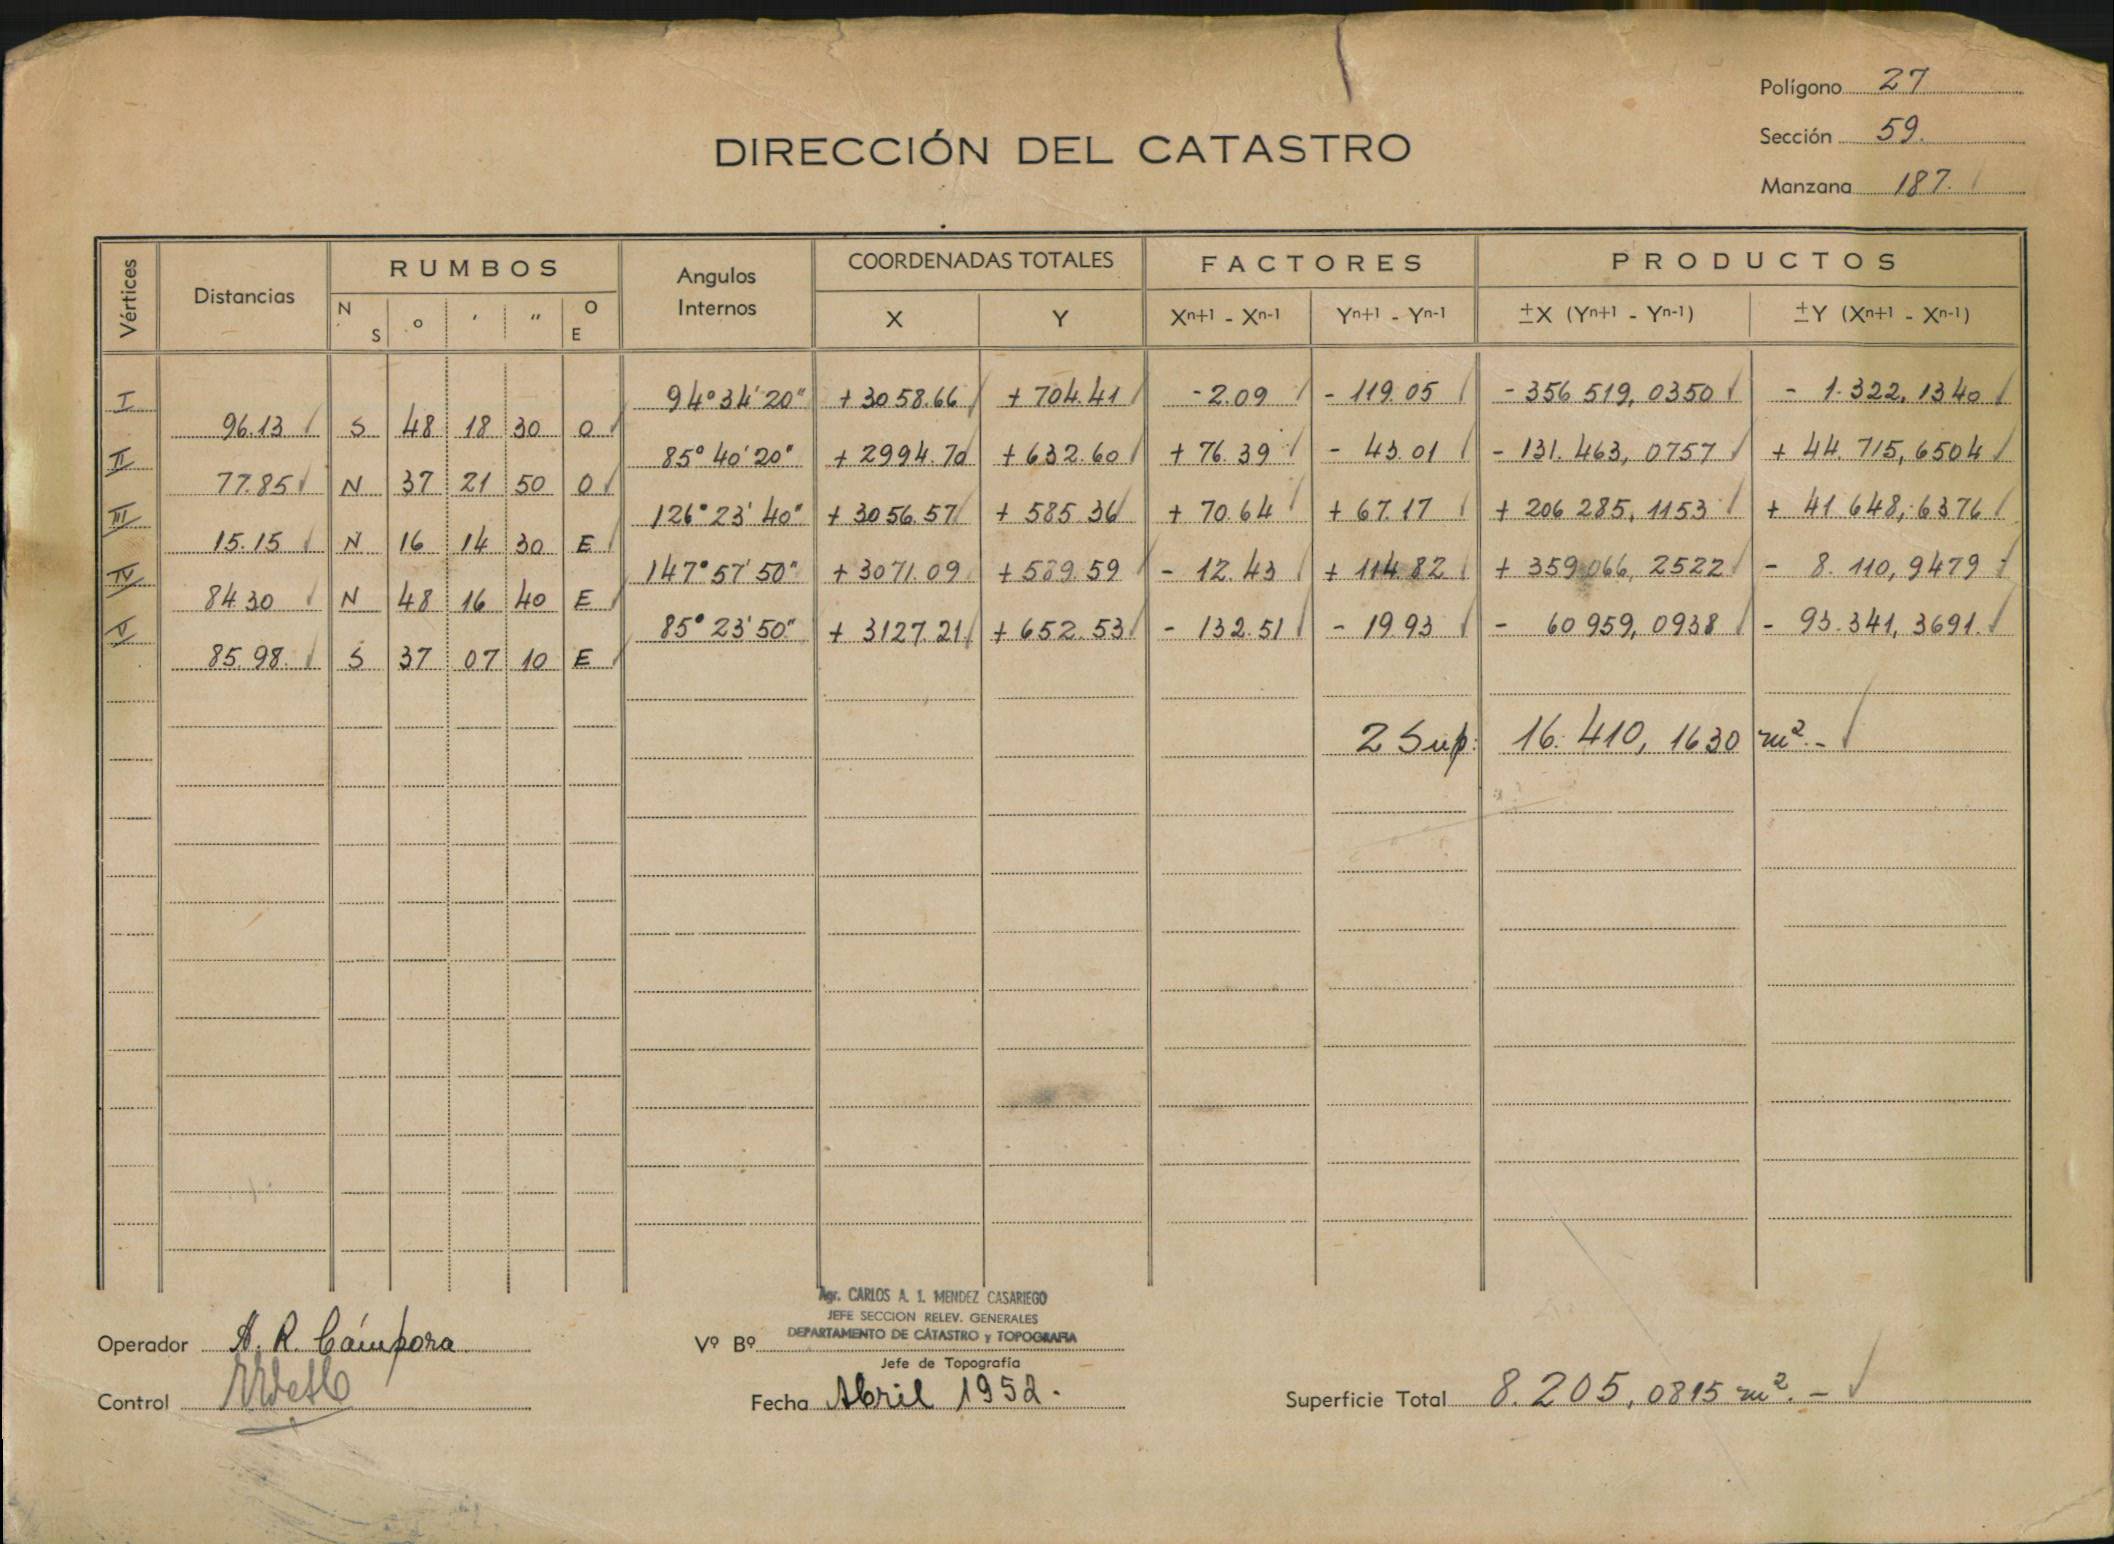 Polígono 27
Sección 59.
Manzana 187.
DIRECCIÓN DEL CATASTRO
Vértices Distancias RUMBOS Angulos Internos COORDENADAS TOTALES FACTORES PRODUCTOS
N S o ' " O E X Y Xn+1 - Xn-1 Yn+1 - Yn-1 ±X (Yn+1 - Yn-1) ±Y (Xn+1 - Xn-1)
I 94°34'20" +3058.66 +704.41 -2.09 -119.05 -356 519,0350 - 1.322,1340
96.13 S 48 18 30 O
II 85°40'20" +2994.70 +632.60 +76.39 - 43.01 -131.463,0757 +44.715,6504
77.85 N 37 21 50 O
III 126°23'40" +3056.57 +585.36 +70.64 +67.17 +206 285,1153 +41 648,6376
15.15 N 16 14 30 E
IV 147°57'50" +3071.09 +589.59 -12.43 +114.82 +359 066,2522 - 8.110,9479
84.30 N 48 16 40 E
V 85°23'50" +3127.21 +652.53 -132.51 -19.93 - 60 959,0938 -93.341,3691.
85.98. S 37 07 10 E
2 Sup: 16.410,1630 m².-
Agr. CARLOS A. J. MENDEZ CASARIEGO
JEFE SECCION RELEV. GENERALES
DEPARTAMENTO DE CATASTRO y TOPOGRAFIA
Operador A. R. Cámpora
Vº Bº
Jefe de Topografía
Control
Fecha Abril 1952.
Superficie Total 8.205,0815 m².-